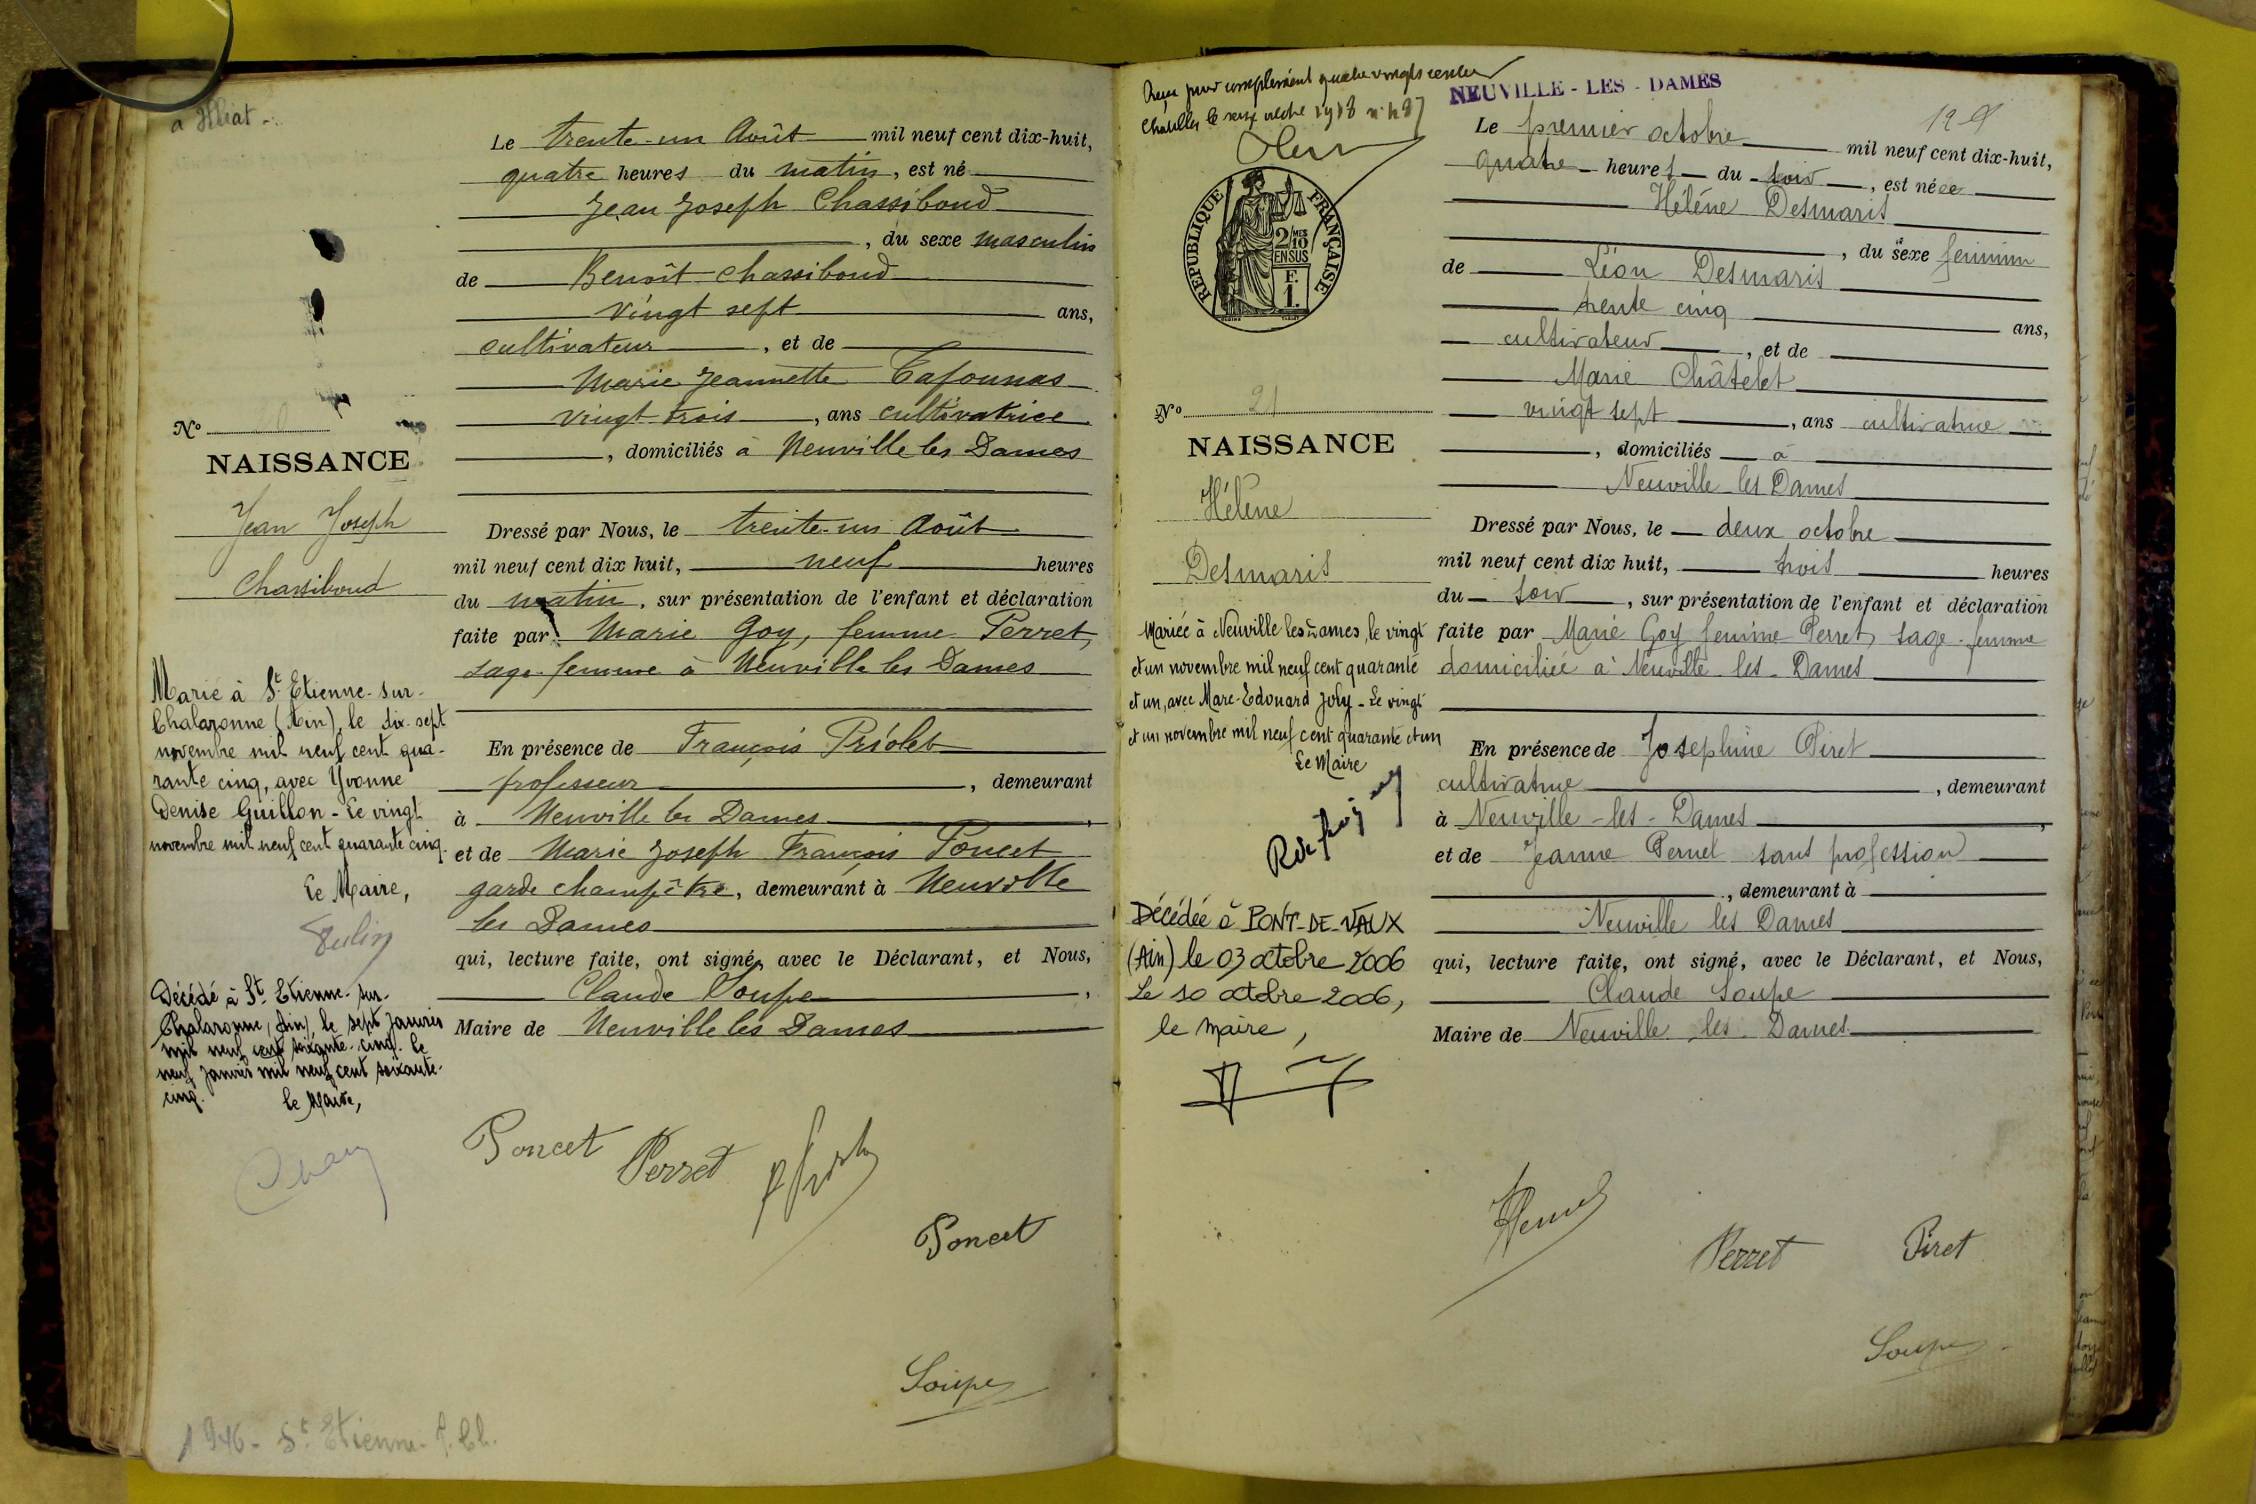 Le trente-un Août mil neuf cent dix-huit,
quatre heures du matin, est né
Jean Joseph Chassiboud
, du sexe masculin
de Benoît Chassiboud
vingt sept ans,
cultivateur, et de
Marie Jeannette
vingt trois, ans cultivatrice
, domiciliés à Neuville les Dames
Dressé par Nous, le trente-un Août
mil neuf cent dix huit, neuf heures
du matin, sur présentation de l'enfant et déclaration
faite par Marie Goy, femme Perret,
sage-femme à Neuville les Dames
En présence de François Priolet
professeur, demeurant
à Neuville les Dames,
et de Marie Joseph François Poncet
garde champêtre, demeurant à Neuville
les Dames
qui, lecture faite, ont signé, avec le Déclarant, et Nous,
Claude Soupe,
Maire de Neuville les Dames
Poncet Perret
Poncet
Soupe
No
NAISSANCE
Jean Joseph
Chassiboud
Marié à St Etienne-sur-
Chalaronne (Ain), le dix-sept
novembre mil neuf cent qua-
rante cinq, avec Yvonne
Denise Guillon - Le vingt
novembre mil neuf cent quarante cinq.
Le Maire,
Décédé à St Etienne-sur-
Chalaronne, (Ain), le sept janvier
mil neuf cent soixante-cinq. Le
neuf janvier mil neuf cent soixante-
cinq. Le Maire,
1946 - St Etienne-s.Ch.
NEUVILLE - LES - DAMES
RÉPUBLIQUE FRANÇAISE
2/10 MES
EN SUS
F.
1.
Le premier octobre mil neuf cent dix-huit,
quatre heures du soir, est née
Hélène Desmaris
, du sexe féminin
de Léon Desmaris
trente cinq ans,
cultivateur, et de
Marie Châtelet
vingt sept, ans cultivatrice
, domiciliés à
Neuville les Dames
Dressé par Nous, le deux octobre
mil neuf cent dix huit, trois heures
du soir, sur présentation de l'enfant et déclaration
faite par Marie Goy femme Perret, sage-femme
domiciliée à Neuville-les-Dames
En présence de Josephine Piret
cultivatrice, demeurant
à Neuville-les-Dames,
et de Jeanne Pernel sans profession
, demeurant à
Neuville les Dames
qui, lecture faite, ont signé, avec le Déclarant, et Nous,
Claude Soupe
Maire de Neuville les Dames
Perret Piret
Soupe
No 21
NAISSANCE
Hélène
Desmaris
Mariée à Neuville les Dames, le vingt
et un novembre mil neuf cent quarante
et un, avec Marc-Edouard Joly - Le vingt
et un novembre mil neuf cent quarante et un
Le Maire
Décédée à PONT-DE-VAUX
(Ain) le 03 octobre 2006
Le 10 octobre 2006,
le maire,